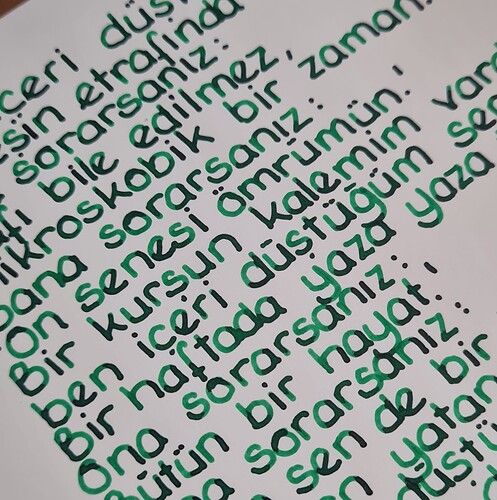 içeri düş
etrafında
sorarsanız:
bile edilmez,
mikroskobik bir zaman.
bana sorarsanız:
On senesi ömrümün!
Bir kurşun kalemim vardı
ben içeri düştüğüm se
Bir haftada yaza yaza
Ona sorarsanız:
Bütün bir hayat!
sorarsanız:
sen de bir
yatan
düştü